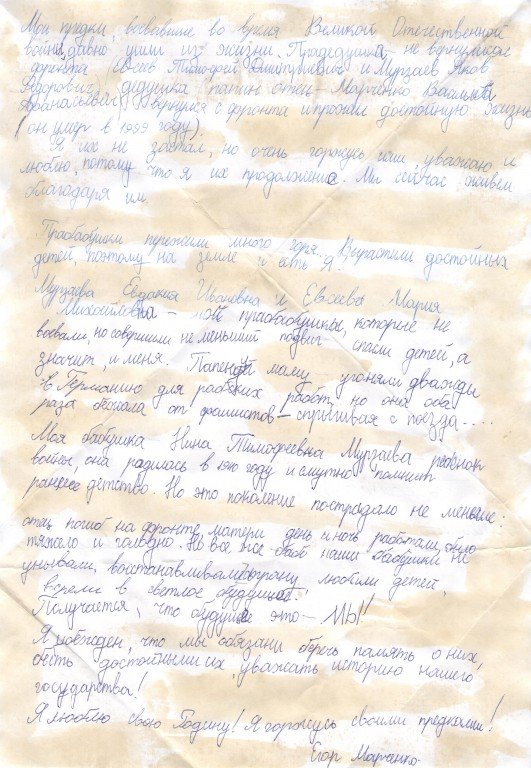 Мои предки, воевавшие во время Великой Отечественной
войны, давно ушли из жизни. Прадедушка – не вернулись с
фронта Евсеев Тимофей Дмитриевич и Мурзаев Яков
Федорович, дедушка папин отец – Марченко Василий
Афанасьевич вернулся с фронта и прожил достойную жизнь
(он умер в 1999 году).
Я их не застал, но очень горжусь ими, уважаю и
люблю, потому что я их продолжение. Мы сейчас живем
благодаря им.
Прабабушки пережили много горя. Вырастили достойных
детей, поэтому на земле и есть Я.
Мурзаева Евдакия Ивановна и Евсеева Мария
Михайловна – мои прабабушки, которые не
воевали, но совершили не меньший подвиг – спасли детей, а
значит, и меня. Папину маму угоняли дважды
в Германию для рабских работ, но она оба
раза бежала от фашистов – спрыгивая с поезда....
Моя бабушка Нина Тимофеевна Мурзаева ребёнок
войны, она радилась в 1940 году и смутно помнит
раннее детство. Но это поколение пострадало не меньше:
отец погиб на фронте, матери день и ночь работали, было
тяжело и голодно. Но все же наши бабушки не
унывали, восстанавливали страну, любили детей,
верели в светлое будущее.
Получается, что будущее это – МЫ!
Я убежден, что мы обязани беречь память о них,
быть достойными их, уважать историю нашего
государства!
Я люблю свою Родину! Я горжусь своими предками!
Егор Марченко.